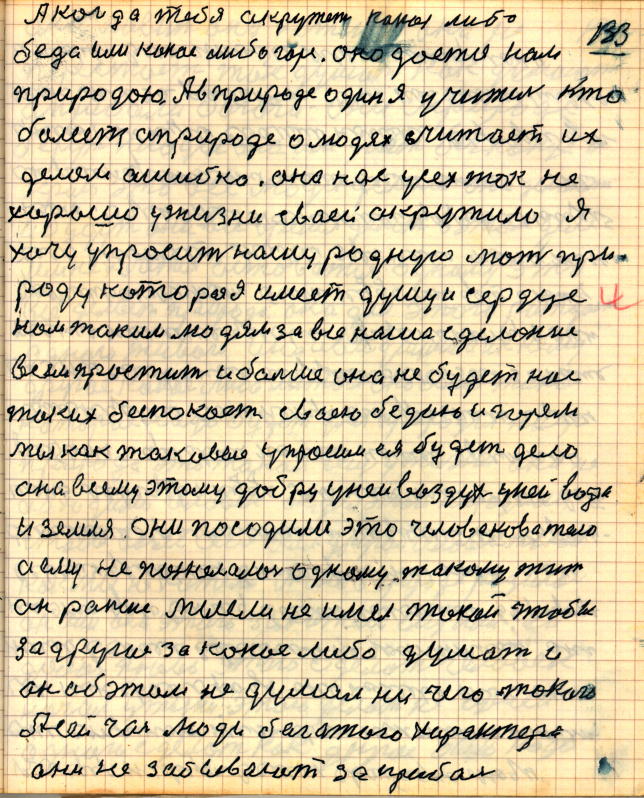 А когда тебя акружет какая либо
133
беда или какое либо горе. оно дается нам
природою. А в природе один я учител кто
болеет априроде о людях считает их
делам ашибко. она нас усех так не
хорошо ужизни сваей акружило Я
хочу упросит нашу родную мат при.
роду которая имеет душу и сердце
нам таким людям за все наша сделание
всем простит и болше она не будет нас
таких беспокоет сваею бедаю и горем
мы как таковые упросим ея будет дело
она всему этому добру уней воздух уней вода
и земля. они посодили это человекователо
а ему не пожелалос одному такому жит
он ранше мысли не имел такой чтобы
за другие за какое либо думат и
он обэтом не думал ни чего такого
люди багатого характера
они не забывают за прибал